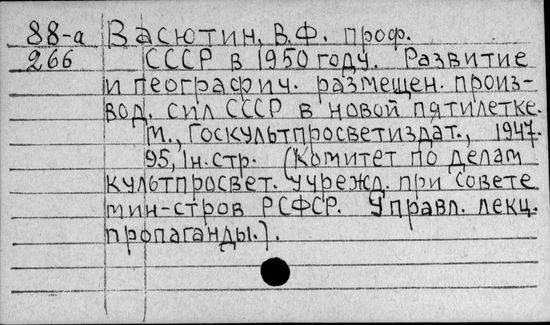 88-а Васютин, В.Ф. проф.
266 СССР в 1950 году. Развитие
и географич. размещен. произ-
вод. сил СССР в новой пятилетке.
М., Госкультпросветиздат., 1947.
95, 1н.стр. (Комитет по делам
культпросвет. учрежд. при Совете
мин-стров РСФСР. Управл. лекц.
пропаганды.).